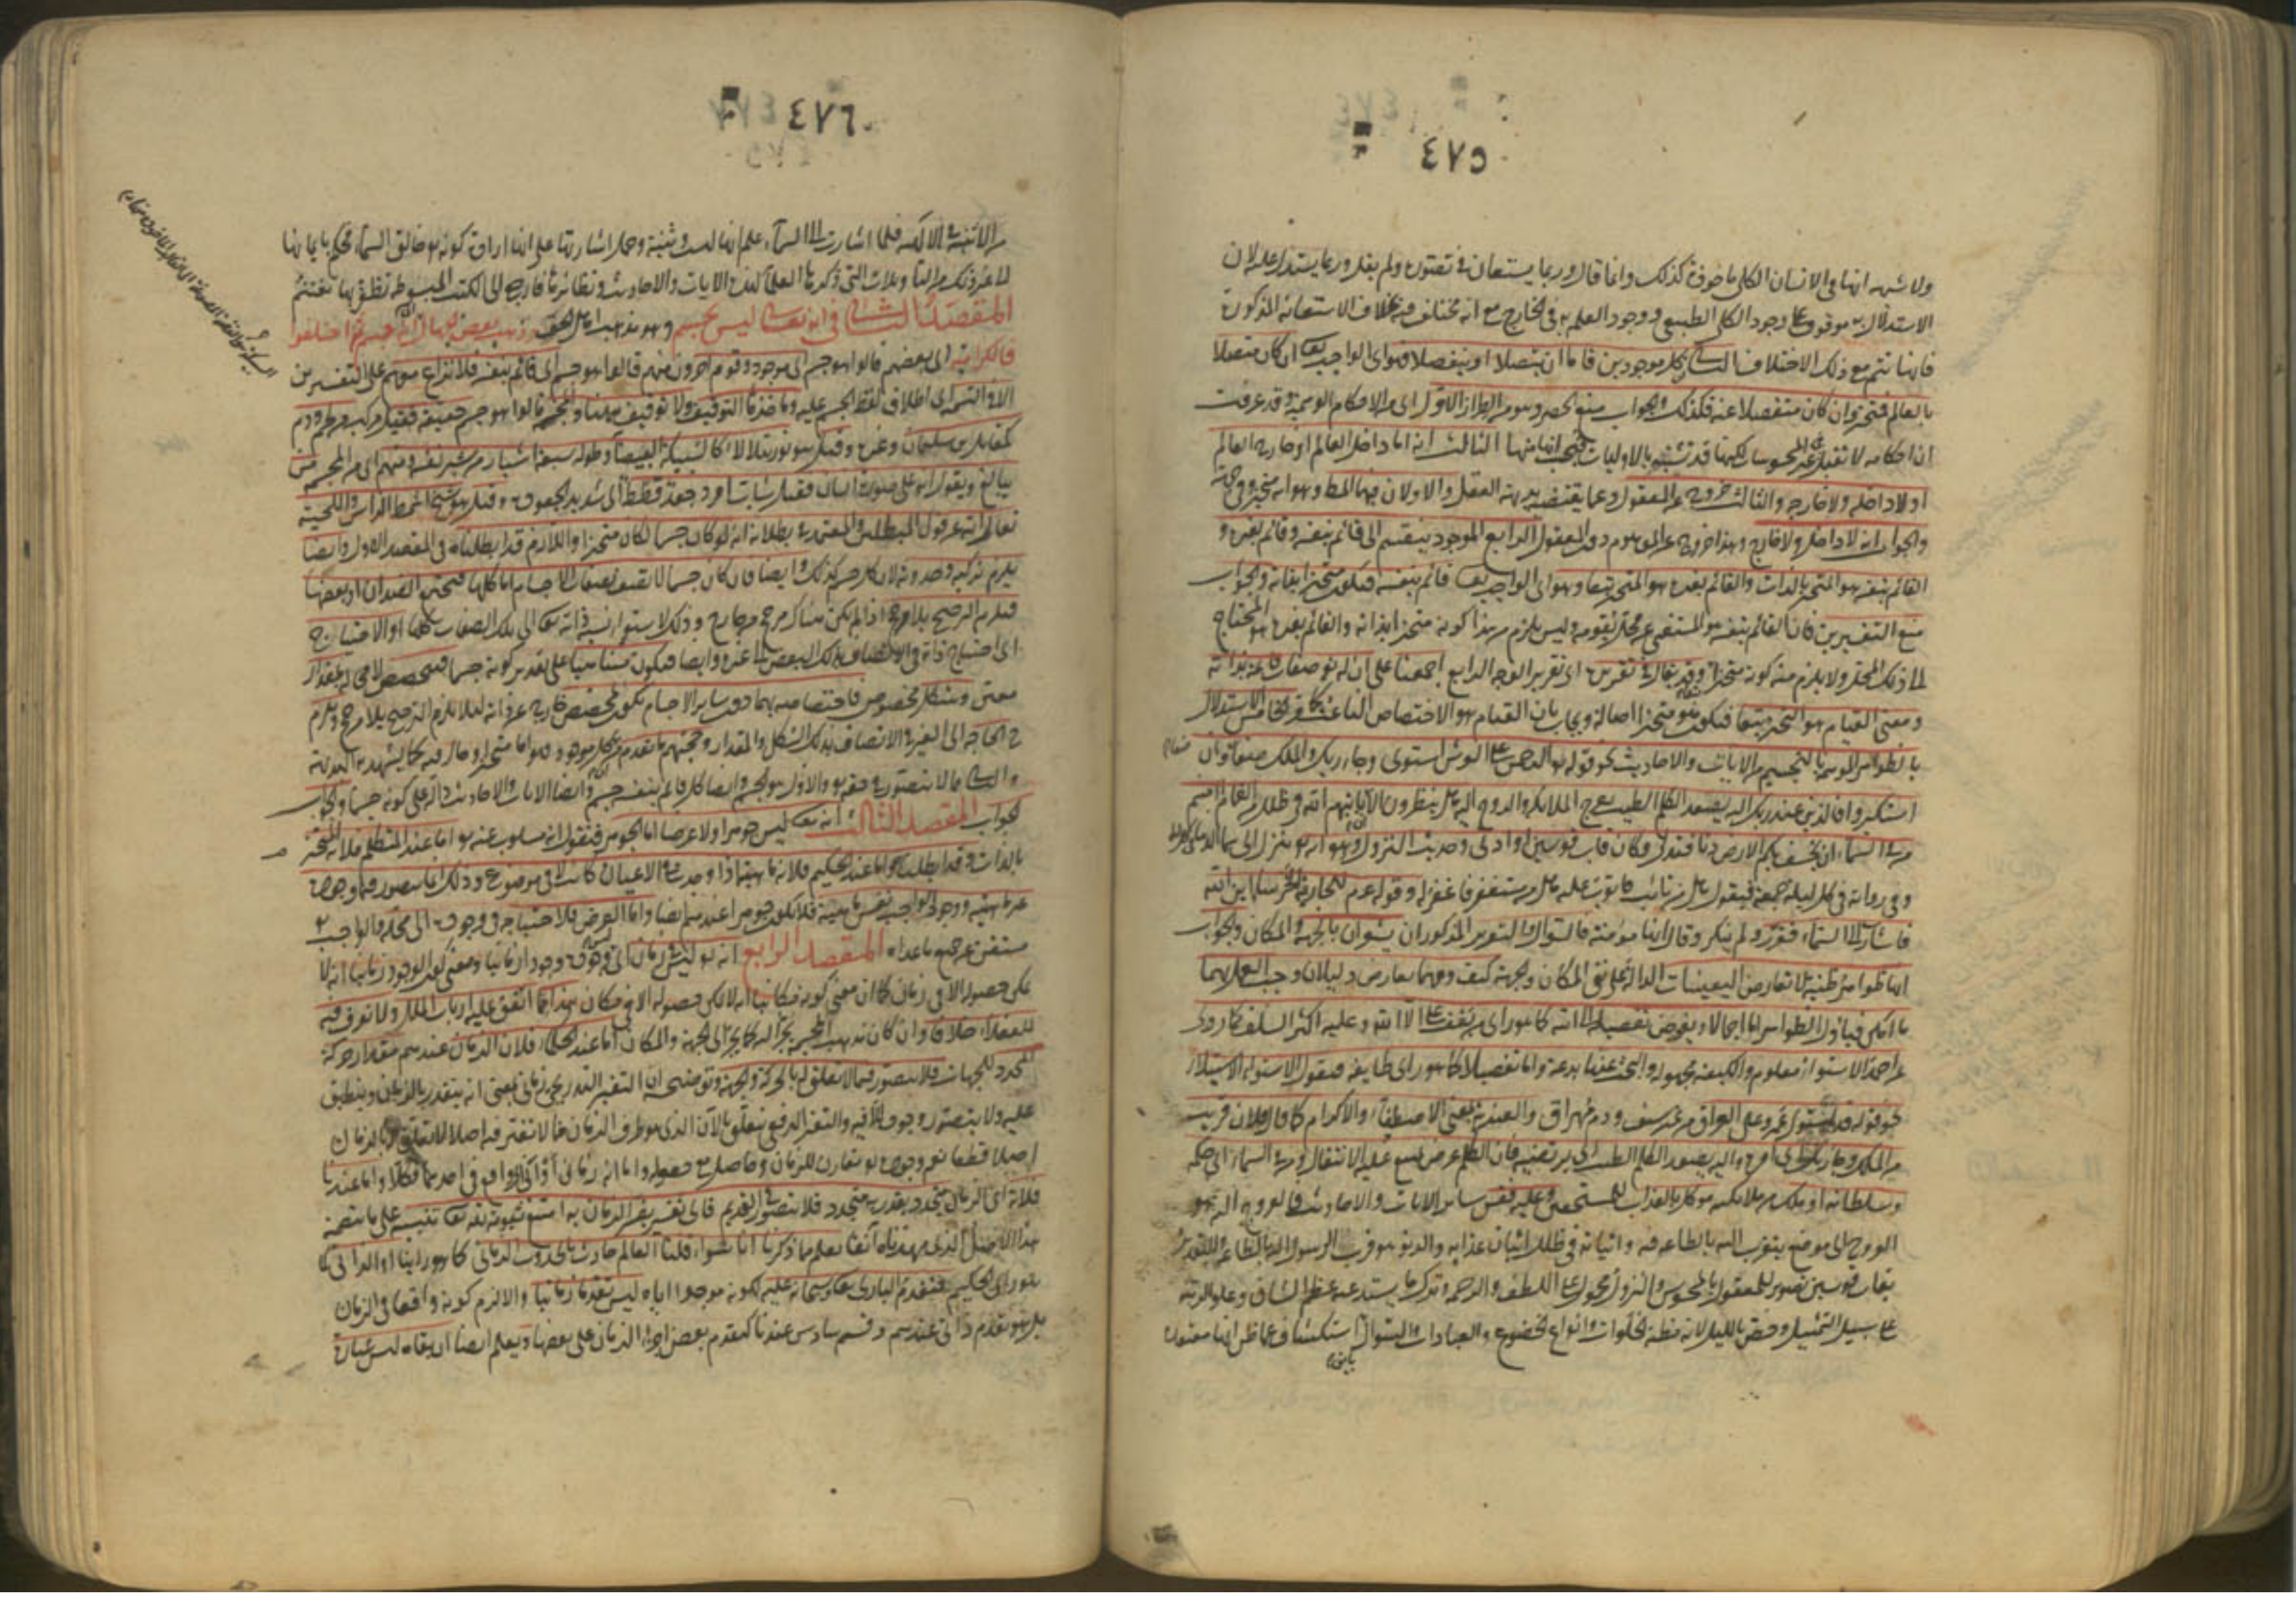 ٤٧٥
ولا شبهه انها في الانسان الكلي ماخوذة كذلك وانما قال وربما يستعان في تصوره ولم يقل وربما يستدل عليه لان
الاستدلال به موقوف على وجود الكلي الطبيعي ووجود العلم به في الخارج مع انه مختلف فيه بخلاف الاستعانة المذكورة
فانها تتم مع ذلك الاختلاف الثاني كل موجودين فاما ان يتصلا او ينفصلا فهو اي الواجب تعالى ان كان متصلا
بالعالم فمتحيز وان كان منفصلا عنه فكذلك والجواب منع الحصر وهو من الطراز الاول اي من الاحكام الوهمية وقد عرفت
ان احكامه لا تقبل في غير المحسوسات لكنها قد تشتبه بالاوليات الثالث انه اما داخل العالم او خارج العالم
او لا داخله ولا خارجه والثالث خروج عن المعقول وعما يقتضيه بديهة العقل والاولان فيهما المط وهو انه متحيز وفي جهة
والجواب انه لا داخل ولا خارج وهذا خروج عن الموهوم دون المعقول الرابع الموجود ينقسم الى قائم بنفسه وقائم بغيره و
القائم بنفسه هو المتحيز بالذات والقائم بغيره هو المتحيز تبعا وهو اي الواجب تعالى قائم بنفسه فيكون متحيزا بذاته والجواب
منع التفسيرين فان القائم بنفسه هو المستغني عن محل يقومه وليس يلزم من هذا كونه متحيزا بذاته والقائم بغيره هو المحتاج
الى ذلك المحل ولا يلزم منه كونه متحيزا وقد يقال في تقريره اي تقرير الوجه الرابع اجمعنا على ان له تعالى صفات قائمة بذاته
ومعنى القيام هو التحيز تبعا فيكون هو متحيزا اصالة ويجاب بان القيام هو الاختصاص الناعت الخامس الاستدلال
بالظواهر الموهمة بالتجسيم من الايات والاحاديث نحو قوله تعالى الرحمن على العرش استوى وجاء ربك والملك صفا صفا فان
استكبروا فالذين عند ربك اليه يصعد الكلم الطيب تعرج الملائكة والروح اليه هل ينظرون الا ان ياتيهم الله في ظلل من الغمام
من في السماء ان يخسف بكم الارض دنا فتدلى فكان قاب قوسين او ادنى وحديث النزول وهو انه تعالى ينزل الى سماء الدنيا
وفي رواية في كل ليلة جمعة فيقول هل من تائب فاتوب عليه هل من مستغفر فاغفر له وقوله عم للجارية الخرساء اين الله
فاشارت الى السماء فقرر ولم ينكر وقال انها مؤمنة فالسؤال والتقرير المذكوران يشعران بالجهة والمكان والجواب
انها ظواهر ظنية لا تعارض اليقينيات الدالة على نفي المكان والجهة كيف ومهما تعارض دليلان وجب العمل بهما
ما امكن فياول الظواهر اما اجمالا ويفوض تفصيله الى الله كما هو راي من يقف على الا الله وعليه اكثر السلف كما روي
عن احمد الاستواء معلوم والكيفية مجهولة والبحث عنها بدعة واما تفصيلا كما هو راي طايفة فنقول الاستواء الاستيلاء
نحو قوله قد استوى عمرو على العراق من غير سيف ودم مهراق والعندية بمعنى الاصطفاء والاكرام كما قال فلان قريب
من الملك وجاء ربك اي امره واليه يصعد الكلم الطيب اي يرتضيه فان الكلم عرض يمتنع عليه الانتقال ومن في السماء اي حكمه
وسلطانه او ملك من ملائكته موكل بالعذاب للمستحقين وعليه فقس ساير الايات والاحاديث فالعروج اليه هو
العروج الى موضع يتقرب اليه بالطاعة فيه واتيانه في ظلل اتيان عذابه والدنو هو قرب الرسول اليه بالطاعة والتقدير
بقاب قوسين تصوير للمعقول بالمحسوس والنزول محمول على اللطف والرحمة وترك ما يستدعيه عظم الشان وعلو الرتبة
على سبيل التمثيل وخص بالليل لانه مظنة الخلوات وانواع الخضوع والعبادات والسؤال استكشاف عما ظن انها معتقدة
٤٧٦
من الاينية في الاله فلما اشارت الى السماء علم انها ليست وثنية وحمل اشارتها على انها اراد كونه تعالى خالق السماء فحكم بايمانها
الى غير ذلك من التاويلات التي ذكرها العلماء لهذه الايات والاحاديث ونظائرها فارجع الى الكتب المبسوطة تظفر بها
المقصد الثاني في انه تعالى ليس بجسم وهو مذهب اهل الحق وذهب بعض الجهال الى انه جسم ثم اختلفوا
فالكرامية اي بعضهم قالوا هو جسم اي موجود وقوم اخرون منهم قالوا هو جسم اي قائم بنفسه فلا نزاع معهم على التفسيرين
الا في التسمية اي اطلاق لفظ الجسم عليه وماخذها التوقيف ولا توقيف ههنا والمجسمة قالوا هو جسم حقيقة فقيل مركب من لحم ودم
كمقاتل بن سليمان وغيره وقيل هو نور يتلالا كالسبيكة البيضاء وطوله سبعة اشبار من شبر نفسه ومنهم اي من المجسمة من
يبالغ ويقول انه على صورة انسان فقيل شاب امرد جعد قطط اي شديد الجعودة وقيل هو شيخ اشمط الراس واللحية
تعالى الله عن قول المبطلين والمعتمد في بطلانه انه لو كان جسما لكان متحيزا واللازم قد ابطلناه في المقصد الاول وايضا
يلزم تركبه وحدوثه لان كل جسم كذلك وايضا فان كان جسما لاتصف بصفات الاجسام اما كلها فيجتمع الضدان او بعضها
فيلزم الترجيح بلا مرجح اذا لم يكن هناك مرجح من خارج وذلك لاستواء نسبة ذاته تعالى الى تلك الصفات كلها او الاحتياج
اي احتياج ذاته في الاتصاف بذلك البعض الى غيره وايضا فيكون متناهيا على تقدير كونه جسما فيتخصص لا محالة بمقدار
معين وشكل مخصوص فاختصاصه بهما دون ساير الاجسام يكون لمخصص خارج عن ذاته لئلا يلزم الترجيح بلا مرجح ويلزم
ح الحاجة الى الغير في الاتصاف بذلك الشكل والمقدار وحجتهم ما تقدم من ان كل موجود فهو اما متحيز او حال فيه كما يشهد به البديهة
والثاني مما لا يتصور في حقه تعالى والاول هو الجسم وايضا كل قائم بنفسه جسم وايضا الايات والاحاديث دالة على كونه جسما والجواب
الجواب المقصد الثالث انه تعالى ليس جوهرا ولا عرضا اما الجوهر فنقول انه مسلوب عنه تعالى اما عند المتكلم فلانه المتحيز
بالذات وقد ابطلناه واما عند الحكيم فلانه ماهية اذا وجدت في الاعيان كانت لا في موضوع وذلك انما يتصور فيما وجوده
غير ماهيته ووجود الواجب نفس ماهيته فلا يكون جوهرا عندهم ايضا واما العرض فلاحتياجه في وجوده الى محله والواجب
مستغن عن جميع ما عداه المقصد الرابع انه تعالى ليس في زمان اي ليس وجوده وجودا زمانيا ومعنى كون الوجود زمانيا انه لا
يمكن حصوله الا في زمان كما ان معنى كونه مكانيا انه لا يمكن حصوله الا في مكان هذا مما اتفق عليه ارباب الملل ولا نعرف فيه
للعقلاء خلافا وان كان مذهب المجسمة يجر اليه كما يجر الى الجهة والمكان اما عند الحكماء فلان الزمان عندهم مقدار حركة
المحدد للجهات فلا يتصور فيما لا تعلق له بالحركة والجهة وتوضيحه ان التغير التدريجي زماني بمعنى انه يتقدر بالزمان وينطبق
عليه ولا يتصور وجوده الا فيه والتغير الدفعي متعلق بالآن الذي هو طرف الزمان فما لا تغير فيه اصلا لا تعلق له بالزمان
اصلا قطعا نعم وجوده تعالى مقارن للزمان وحاصل مع حصوله واما انه زماني او آني اي واقع في احدهما فكلا واما عندنا
فلانه اي الزمان متجدد يقدر به متجدد فلا يتصور في القديم فاي تفسير يفسر الزمان به امتنع ثبوته لله تعالى تنبيه على ما يتضمنه
هذا الاصل الذي مهدناه آنفا يعلم مما ذكرنا انا سواء قلنا العالم حادث بالحدوث الزماني كما هو راينا او الذاتي كما
هو راي الحكيم فتقدم الباري سبحانه عليه لكونه موجدا اياه ليس تقدما زمانيا والا لزم كونه واقعا في الزمان
بل هو تقدم ذاتي عندهم وقسم سادس عندنا كتقدم بعض اجزاء الزمان على بعضها ويعلم ايضا ان بقاءه ليس عبارة